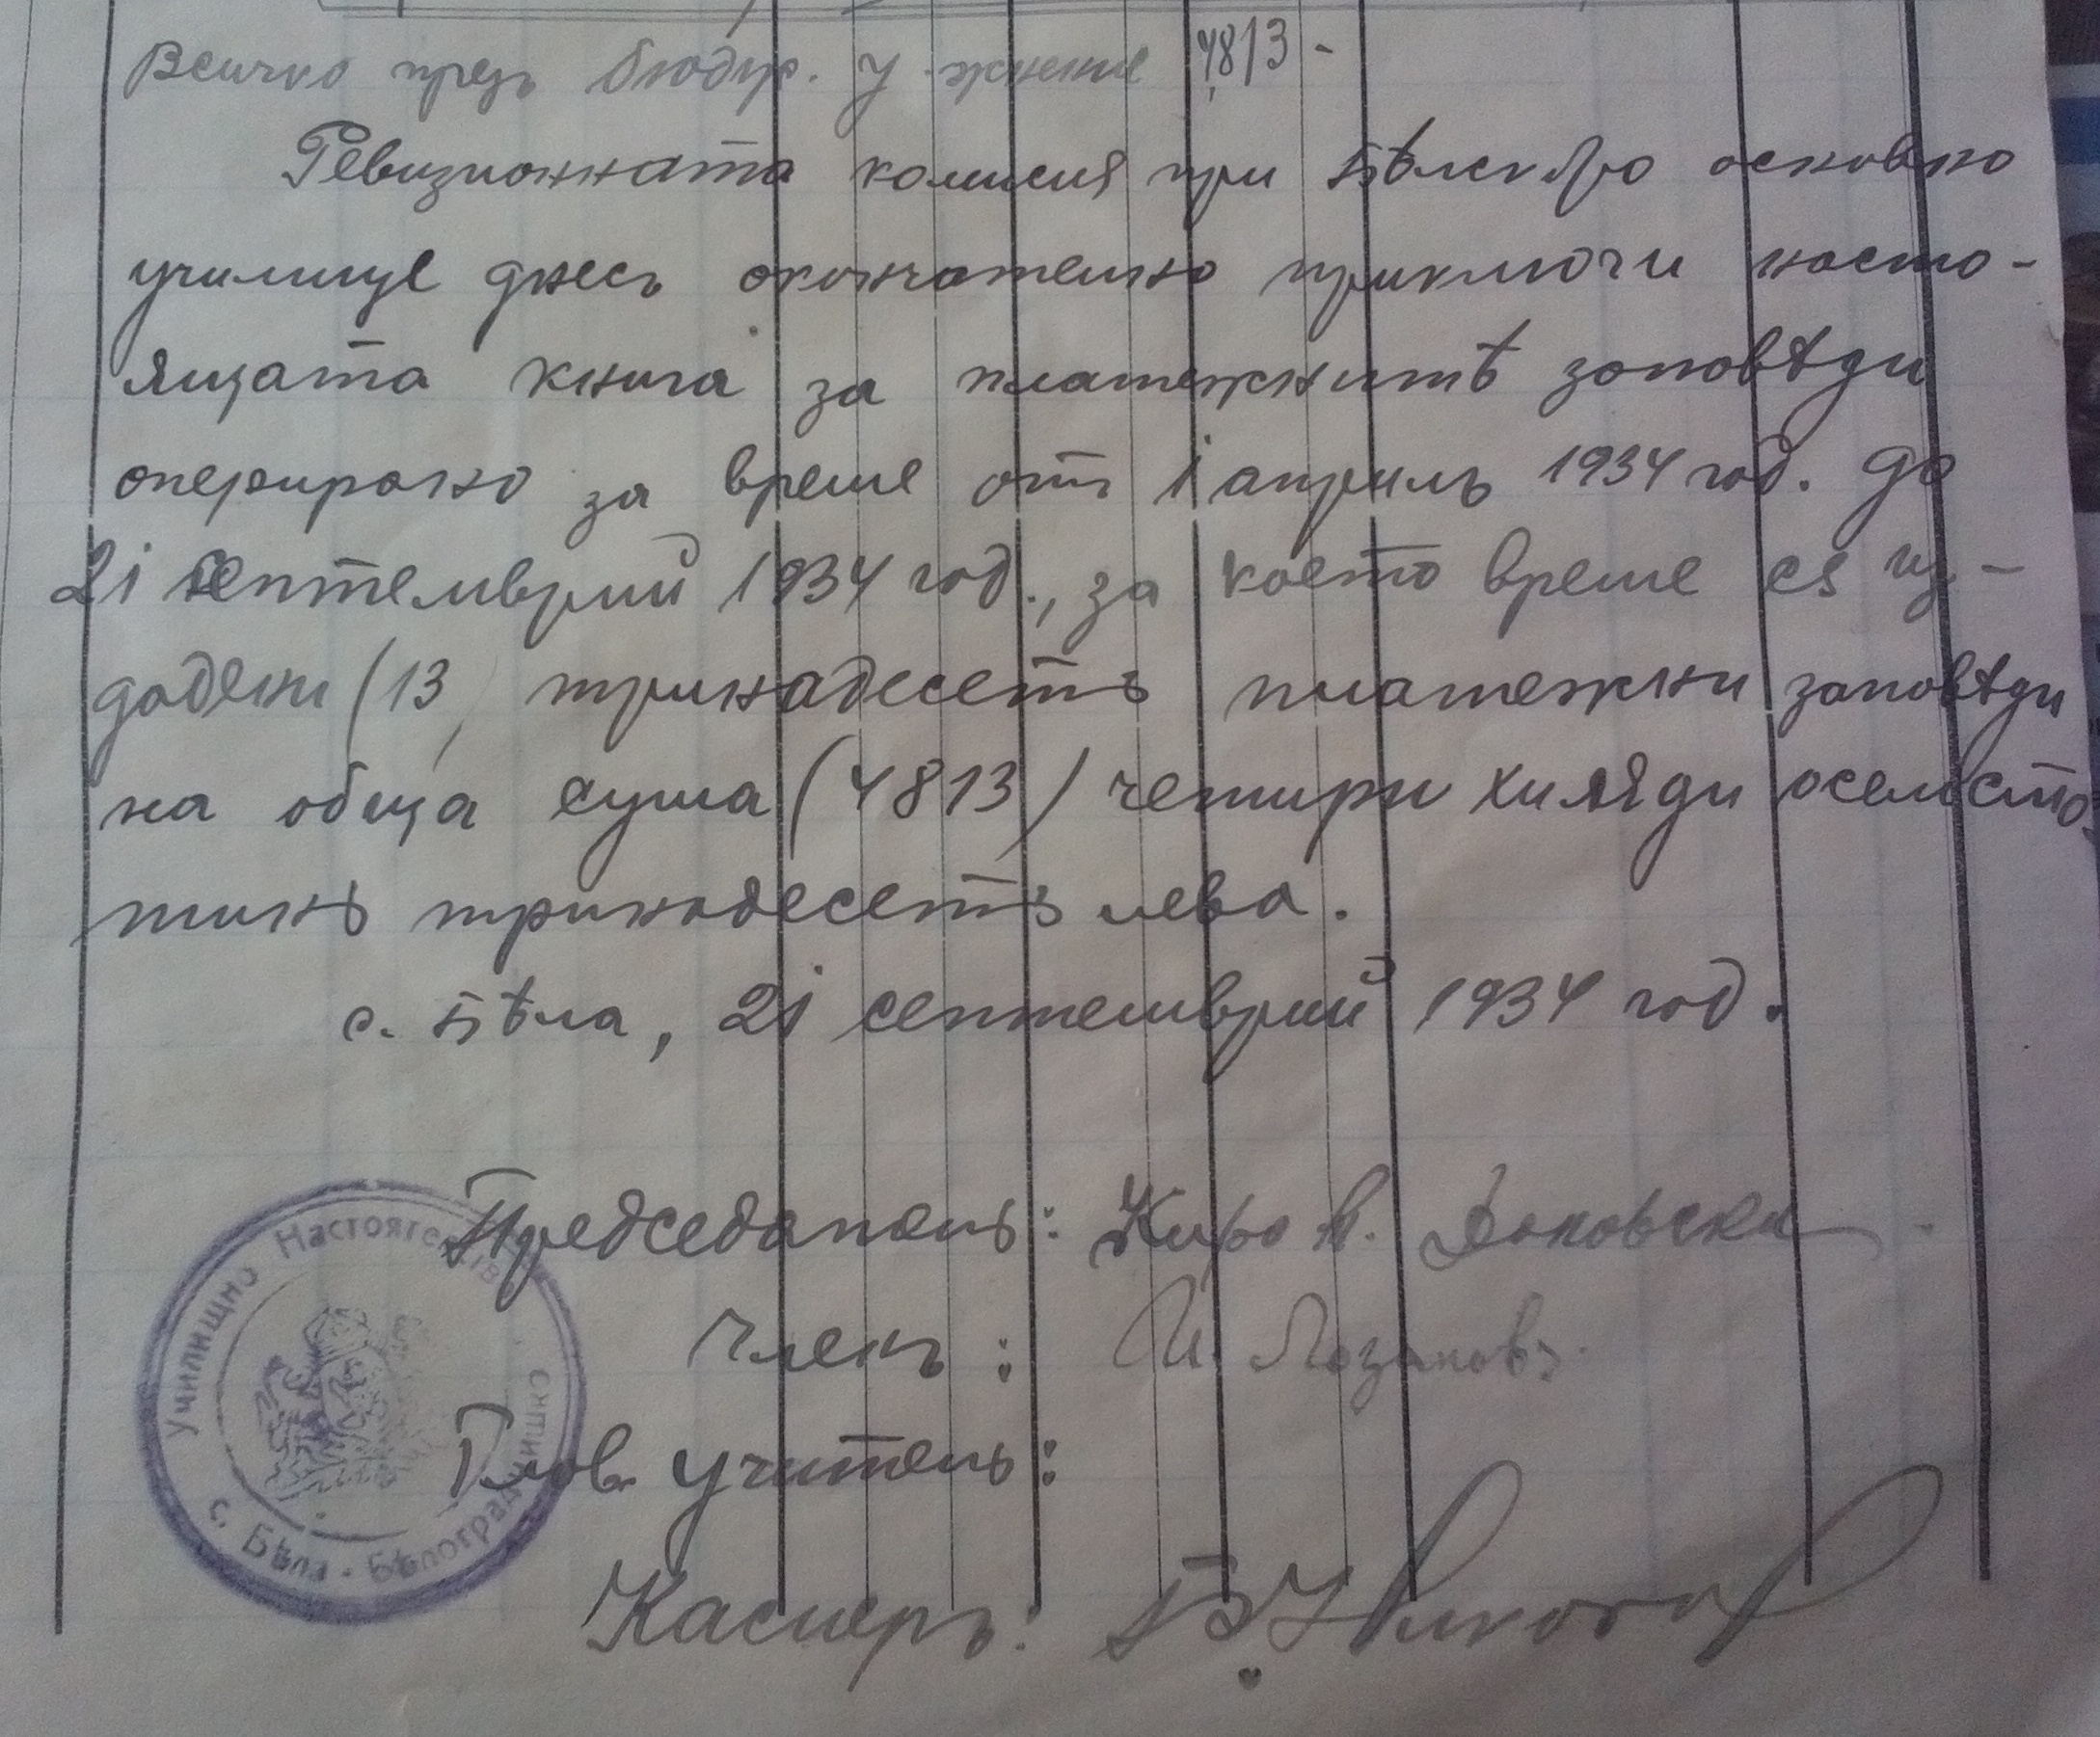 Всичко презъ бюдж. упражнение 4813 -
Ревизионната комисия при Бѣлското основно
училище днесъ окончателно приключи насто-
ящата книга за платежнитѣ заповѣди
оперирано за време отъ 1 априль 1934 год. до
21 септемврий 1934 год., за което време ся из-
дадени (13) тринадесетъ платежни заповѣди
на обща сума (4813) четири хиляди осемсто-
тинъ тринадесетъ лева.
с. Бѣла, 21 септемврий 1934 год.
Председатель: Киро В.
Членъ: И. Лозановъ.
Глов. Учитель:
Касиеръ:
Училищно Настоятелство
с. Бѣла - Бѣлоградчишка